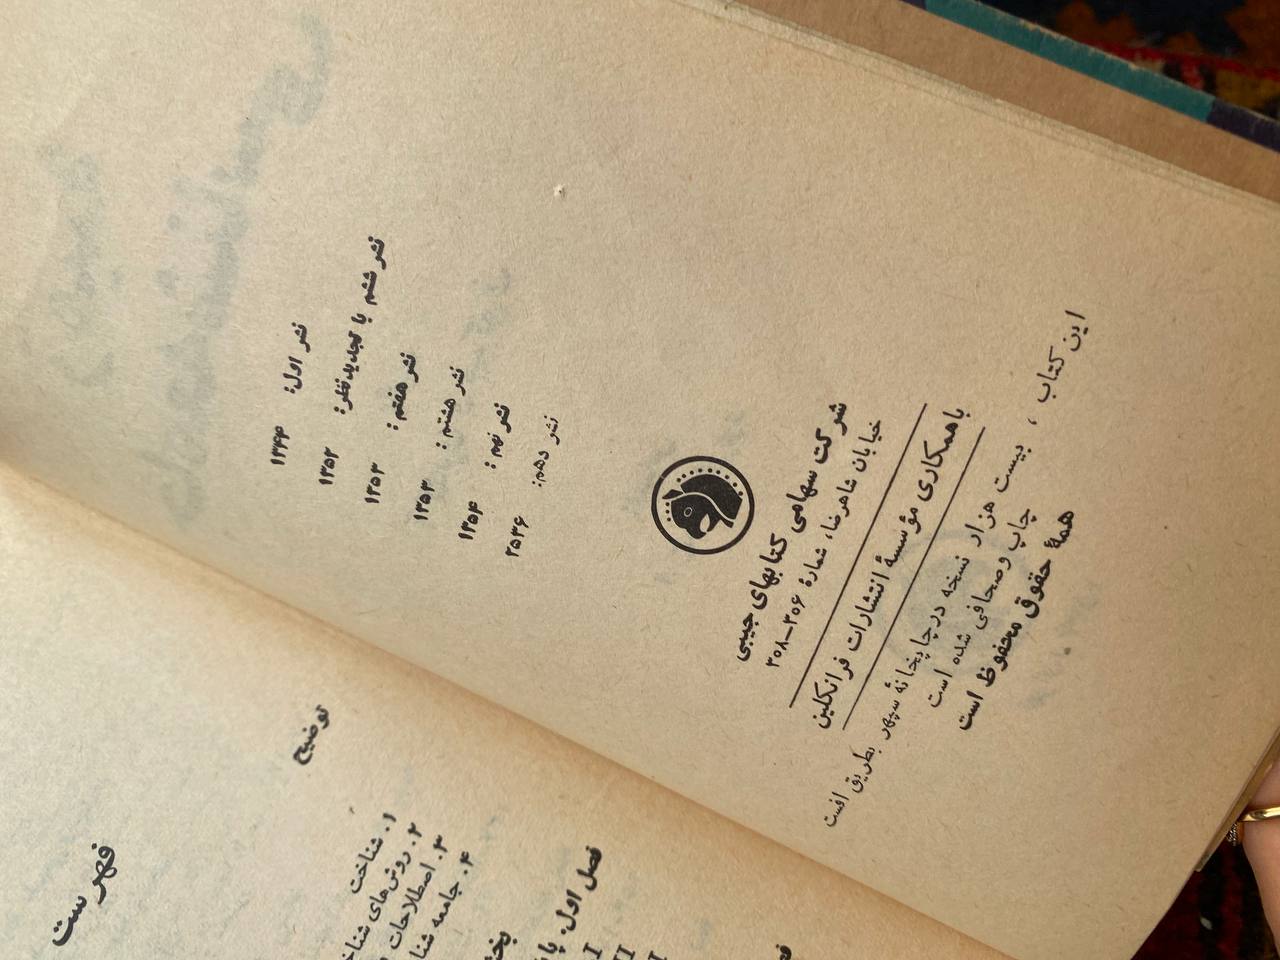 نشر اول: ۱۳۴۴
نشر ششم با تجدیدنظر: ۱۳۵۲
نشر هفتم: ۱۳۵۳
نشر هشتم: ۱۳۵۳
نشر نهم: ۱۳۵۴
نشر دهم: ۲۵۳۶
شرکت سهامی کتابهای جیبی
خیابان شاهرضا، شمارهٔ ۳۵۶–۳۵۸
با همکاری مؤسسهٔ انتشارات فرانکلین
این کتاب، بیست هزار نسخه در چاپخانهٔ سپهر بطریق افست
چاپ و صحافی شده است
همهٔ حقوق محفوظ است
فهرست
توضیح
۱. شناخت
۲. روش‌های
۳. اصطلاحات
۴. جامعه
فصل اول.
I
II